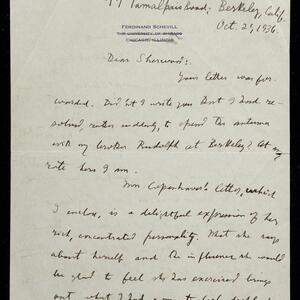 99 Tamalpais Road; Berkeley, Calif.
Oct. 21, 1936.
FERDINAND SCHEVILL
THE UNIVERSITY OF CHICAGO
CHICAGO, ILLINOIS
Dear Sherwood:
Your letter was for-
warded. Did not I write you that I had re-
solved, rather suddenly, to spend the autumn
with my brother Rudolph at Berkeley? At any
rate here I am.
Mrs Copenhaver's letter, which
I enclose, is a delightful expression of her
rich, concentrated personality. What she says
about herself and the influence she would
be glad to feel she has exercised brings
out what I had